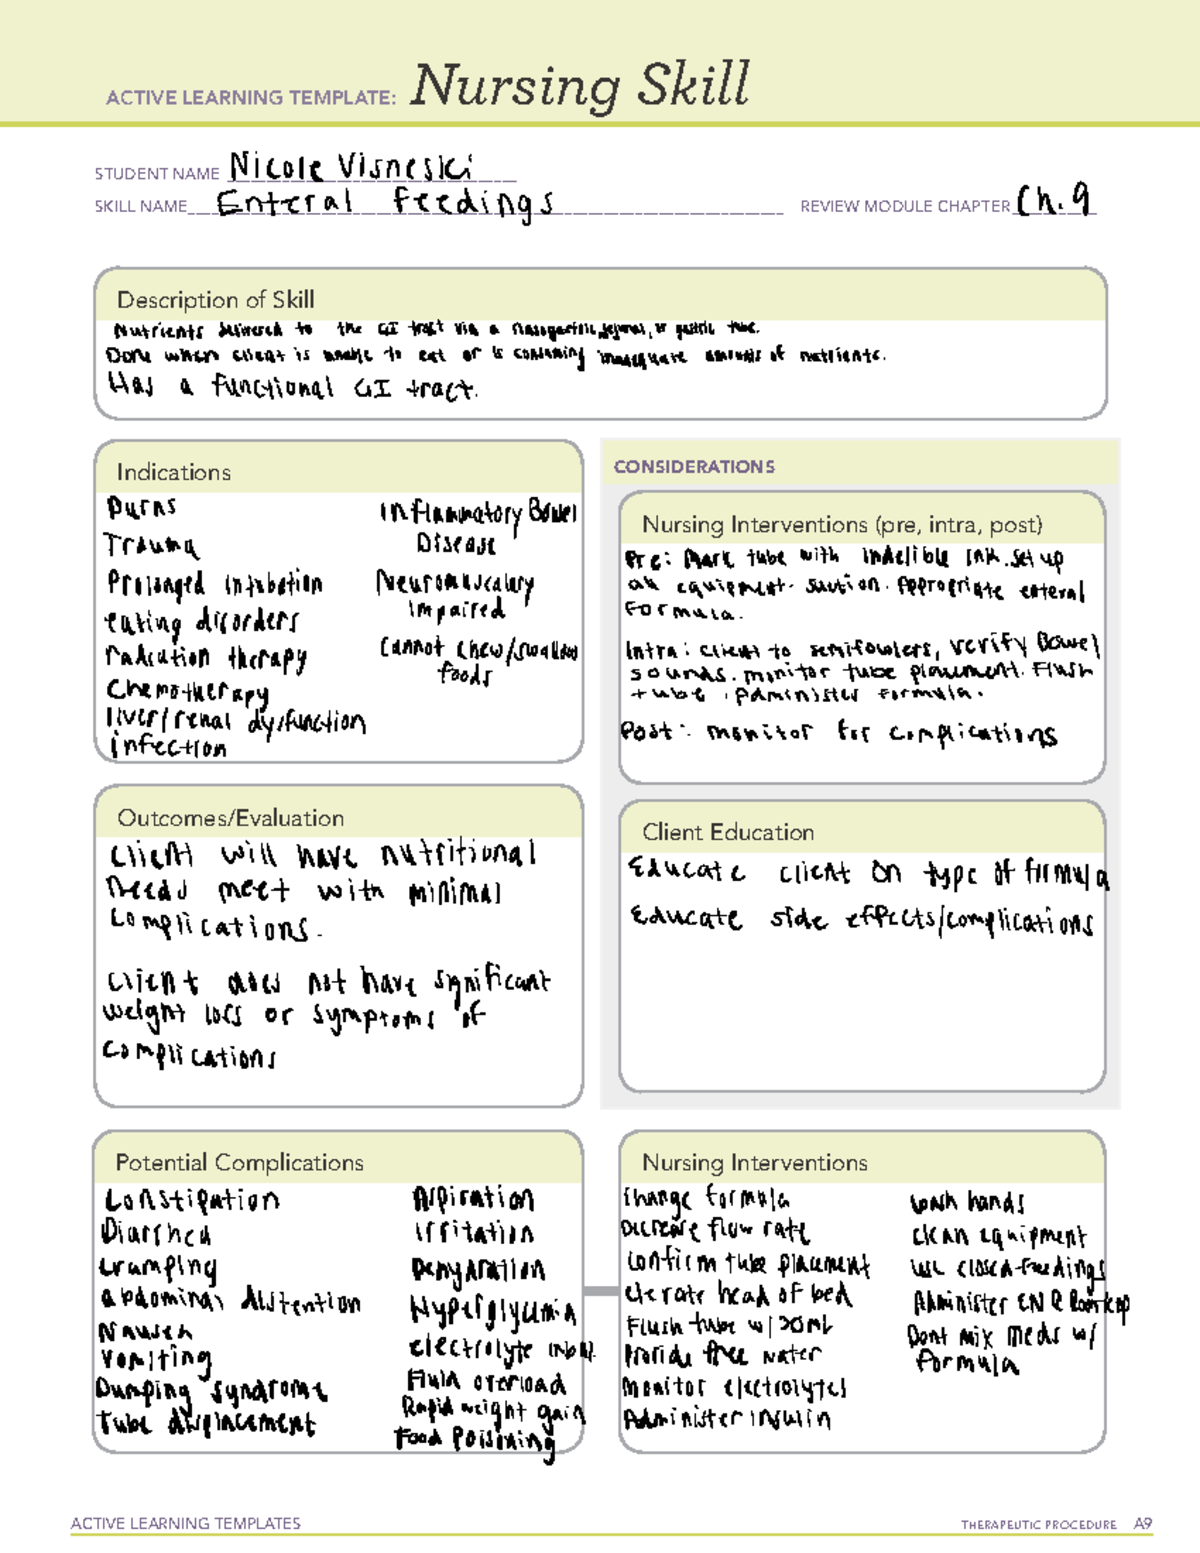 ACTIVE LEARNING TEMPLATE: Nursing Skill
STUDENT NAME Nicole Visneski
SKILL NAME Enteral Feedings REVIEW MODULE CHAPTER Ch. 9
Description of Skill
Nutrients delivered to the GI tract via a nasogastric, jejunal, or gastric tube.
Done when client is unable to eat or is consuming inadequate amounts of nutrients.
Has a functional GI tract.
Indications
Burns
Trauma
Prolonged intubation
eating disorders
radiation therapy
Chemotherapy
liver/renal dysfunction
infection
Inflammatory Bowel
Disease
Neuromuscularly
impaired
Cannot chew/swallow
foods
CONSIDERATIONS
Nursing Interventions (pre, intra, post)
Pre: Mark tube with indelible ink. Set up
all equipment. suction. Appropriate enteral
Formula.
Intra: client to semifowlers, verify Bowel
sounds. monitor tube placement. Flush
tube. Administer formula.
Post: monitor for complications
Outcomes/Evaluation
Client will have nutritional
needs meet with minimal
complications.
Client does not have significant
weight loss or symptoms of
complications
Client Education
Educate client on type of formula
Educate side effects/complications
Potential Complications
Constipation
Diarrhea
cramping
abdominal distention
Nausea
Vomiting
Dumping syndrome
Tube displacement
Aspiration
Irritation
Dehydration
Hyperglycemia
electrolyte imbal.
Fluid overload
Rapid weight gain
Food Poisoning
Nursing Interventions
Change formula
Decrease flow rate
confirm tube placement
elevate head of bed
Flush tube w/ 30mL
Provide free water
Monitor electrolytes
Administer insulin
wash hands
clean equipment
use closed feedings
Administer EN @ Room temp
Dont mix meds w/
formula
ACTIVE LEARNING TEMPLATES THERAPEUTIC PROCEDURE A9